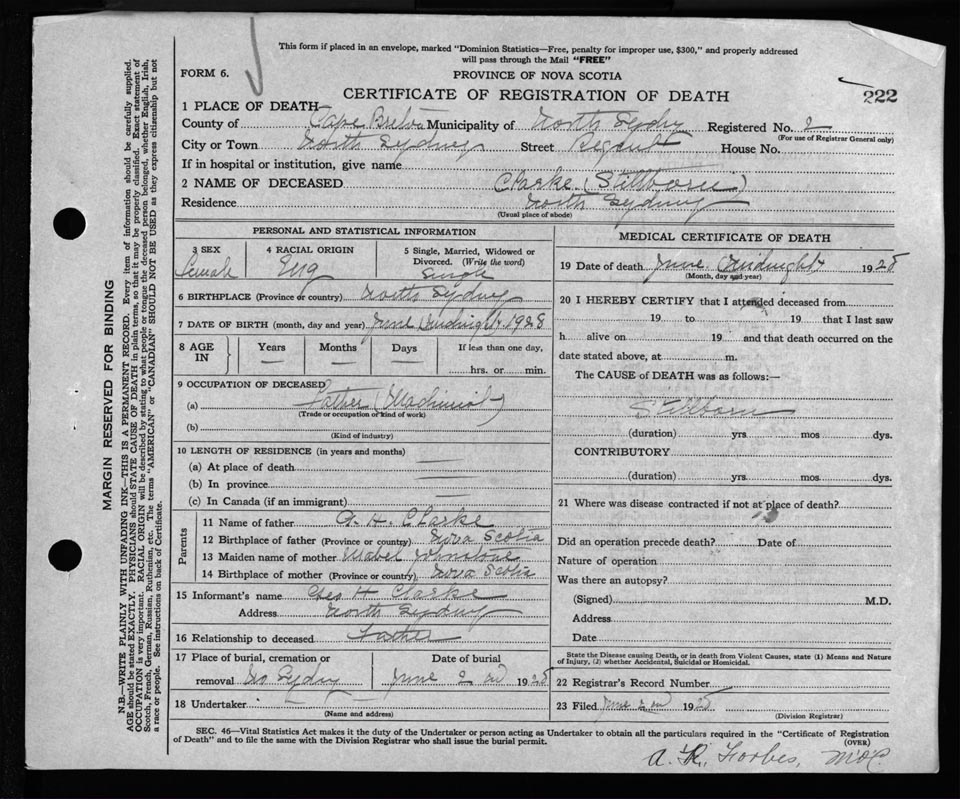 This form if placed in an envelope, marked "Dominion Statistics—Free, penalty for improper use, $300," and properly addressed
will pass through the Mail "FREE"
FORM 6.
PROVINCE OF NOVA SCOTIA
CERTIFICATE OF REGISTRATION OF DEATH
222
1 PLACE OF DEATH
County of Cape Breton Municipality of North Sydney Registered No. 2
(For use of Registrar General only)
City or Town North Sydney Street Regent House No.
If in hospital or institution, give name
2 NAME OF DECEASED Clarke (Stillborn)
Residence North Sydney
(Usual place of abode)
PERSONAL AND STATISTICAL INFORMATION
3 SEX 4 RACIAL ORIGIN 5 Single, Married, Widowed or
Divorced. (Write the word)
Female Eng Single
6 BIRTHPLACE (Province or country) North Sydney
7 DATE OF BIRTH (month, day and year) June (Midnight) 1928
8 AGE IN Years Months Days If less than one day,
hrs. or min.
9 OCCUPATION OF DECEASED
(a) Father (Machinist)
(Trade or occupation or kind of work)
(b)
(Kind of industry)
10 LENGTH OF RESIDENCE (in years and months)
(a) At place of death
(b) In province
(c) In Canada (if an immigrant)
Parents
11 Name of father G. H. Clarke
12 Birthplace of father (Province or country) Nova Scotia
13 Maiden name of mother Mabel Johnstone
14 Birthplace of mother (Province or country) Nova Scotia
15 Informant's name Geo H Clarke
Address North Sydney
16 Relationship to deceased Father
17 Place of burial, cremation or Date of burial
removal No Sydney June 2 1928
18 Undertaker
(Name and address)
MEDICAL CERTIFICATE OF DEATH
19 Date of death June (Midnight) 1928
(Month, day and year)
20 I HEREBY CERTIFY that I attended deceased from
19 to 19 that I last saw
h alive on 19 and that death occurred on the
date stated above, at m.
The CAUSE of DEATH was as follows:—
Stillborn
(duration) yrs. mos dys.
CONTRIBUTORY
(duration) yrs. mos dys.
21 Where was disease contracted if not at place of death?
Did an operation precede death? Date of
Nature of operation
Was there an autopsy?
(Signed) M.D.
Address
Date
State the Disease causing Death, or in death from Violent Causes, state (1) Means and Nature
of Injury, (2) whether Accidental, Suicidal or Homicidal.
22 Registrar's Record Number
23 Filed June 2 1928
(Division Registrar)
SEC. 46—Vital Statistics Act makes it the duty of the Undertaker or person acting as Undertaker to obtain all the particulars required in the "Certificate of Registration
of Death" and to file the same with the Division Registrar who shall issue the burial permit.
(OVER)
A. R. Forbes,
MARGIN RESERVED FOR BINDING
N.B.—WRITE PLAINLY WITH UNFADING INK—THIS IS A PERMANENT RECORD. Every item of information should be carefully supplied.
AGE should be stated EXACTLY. PHYSICIANS should STATE CAUSE OF DEATH in plain terms, so that it may be properly classified. Exact statement of
OCCUPATION is very important. RACIAL ORIGIN will be described by stating to what people or tongue the deceased person belonged, whether English, Irish,
Scotch, French, German, Russian, Ruthenian, etc. The terms "AMERICAN" or "CANADIAN" SHOULD NOT BE USED as they express citizenship but not
a race or people. See instructions on back of Certificate.